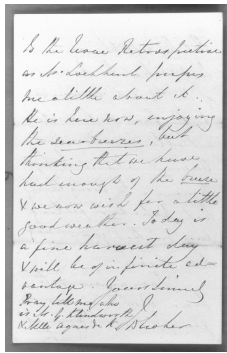 to the
as Mr Lockhart
me a little about it.
He is here now, enjoying
the sea-breezes, but
thinking that we have
had enough of the
& we now wish for a little
good weather. Today is
a fine harvest day
& will be of infinite ad-
vantage. Yours sincerely
Pray tell me who
is Mr G.
& Mlle Agnes de K